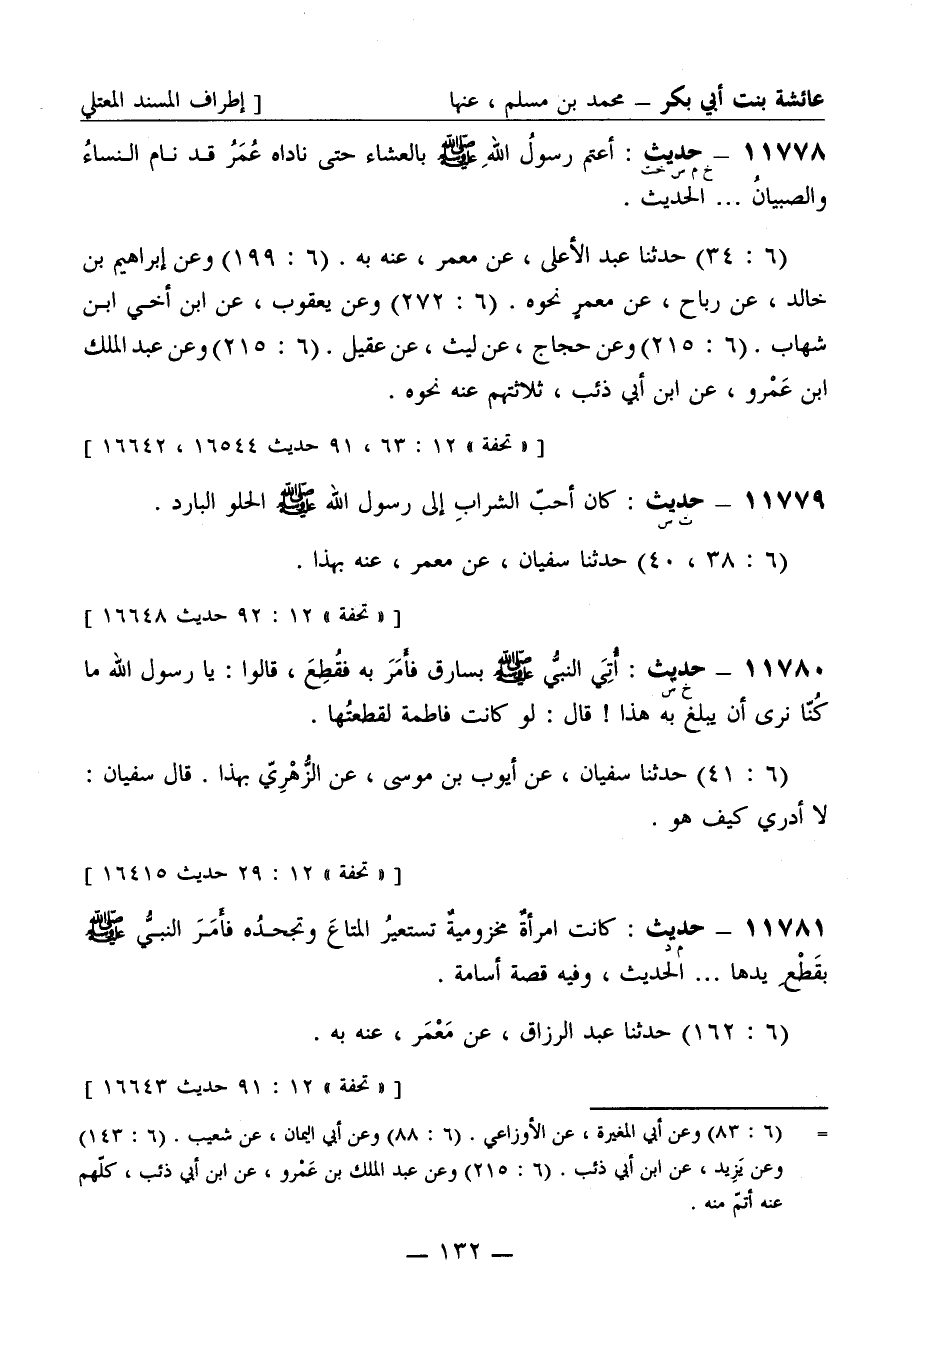 عائشة بنت أبي بكر – محمد بن مسلم ، عنها [ إطراف المسند المعتلي
١١٧٧٨ – حديث : أعتم رسولُ اللهِ ﷺ بالعشاء حتى ناداه عُمَرُ قد نام النساءُ
خ م س حت
والصبيانُ ... الحديث .
(٦ : ٣٤) حدثنا عبد الأعلى ، عن معمر ، عنه به . (٦ : ١٩٩) وعن إبراهيم بن
خالد ، عن رباح ، عن معمرٍ نحوه . (٦ : ٢٧٢) وعن يعقوب ، عن ابن أخي ابن
شهاب . (٦ : ٢١٥) وعن حجاج ، عن ليث ، عن عقيل . (٦ : ٢١٥) وعن عبد الملك
ابن عَمْرو ، عن ابن أبي ذئب ، ثلاثتهم عنه نحوه .
[ « تحفة » ١٢ : ٦٣ ، ٩١ حديث ١٦٥٤٤ ، ١٦٦٤٢ ]
١١٧٧٩ – حديث : كان أحبّ الشرابِ إلى رسول الله ﷺ الحلو البارد .
ت س
(٦ : ٣٨ ، ٤٠) حدثنا سفيان ، عن معمر ، عنه بهذا .
[ « تحفة » ١٢ : ٩٢ حديث ١٦٦٤٨ ]
١١٧٨٠ – حديث : أُتِيَ النبيُّ ﷺ بسارق فأَمَرَ به فقُطِعَ ، قالوا : يا رسول الله ما
خ س
كُنّا نرى أن يبلغ به هذا ! قال : لو كانت فاطمة لقطعتُها .
(٦ : ٤١) حدثنا سفيان ، عن أيوب بن موسى ، عن الزُّهْرِيّ بهذا . قال سفيان :
لا أدري كيف هو .
[ « تحفة » ١٢ : ٢٩ حديث ١٦٤١٥ ]
١١٧٨١ – حديث : كانت امرأةٌ مخزوميةٌ تستعيرُ المتاعَ وتجحدُه فأَمَرَ النبيُّ ﷺ
م د
بقَطْعِ يدها ... الحديث ، وفيه قصة أسامة .
(٦ : ١٦٢) حدثنا عبد الرزاق ، عن مَعْمَر ، عنه به .
[ « تحفة » ١٢ : ٩١ حديث ١٦٦٤٣ ]
= (٦ : ٨٣) وعن أبي المغيرة ، عن الأوزاعي . (٦ : ٨٨) وعن أبي اليمان ، عن شعيب . (٦ : ١٤٣)
وعن يَزِيد ، عن ابن أبي ذئب . (٦ : ٢١٥) وعن عبد الملك بن عَمْرو ، عن ابن أبي ذئب ، كلّهم
عنه أتمّ منه .
– ١٣٢ –